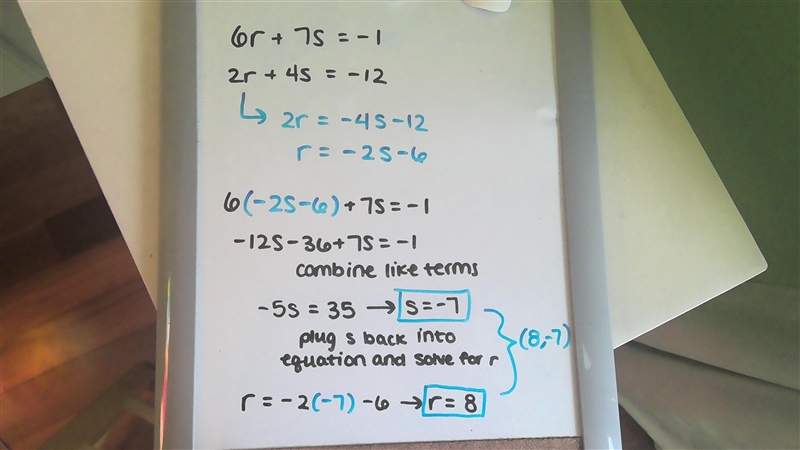 6r + 7s = -1
2r + 4s = -12
↳ 2r = -4s - 12
r = -2s - 6
6(-2s - 6) + 7s = -1
-12s - 36 + 7s = -1
combine like terms
-5s = 35 → s = -7
plug s back into
equation and solve for r
(8,-7)
r = -2(-7) - 6 → r = 8